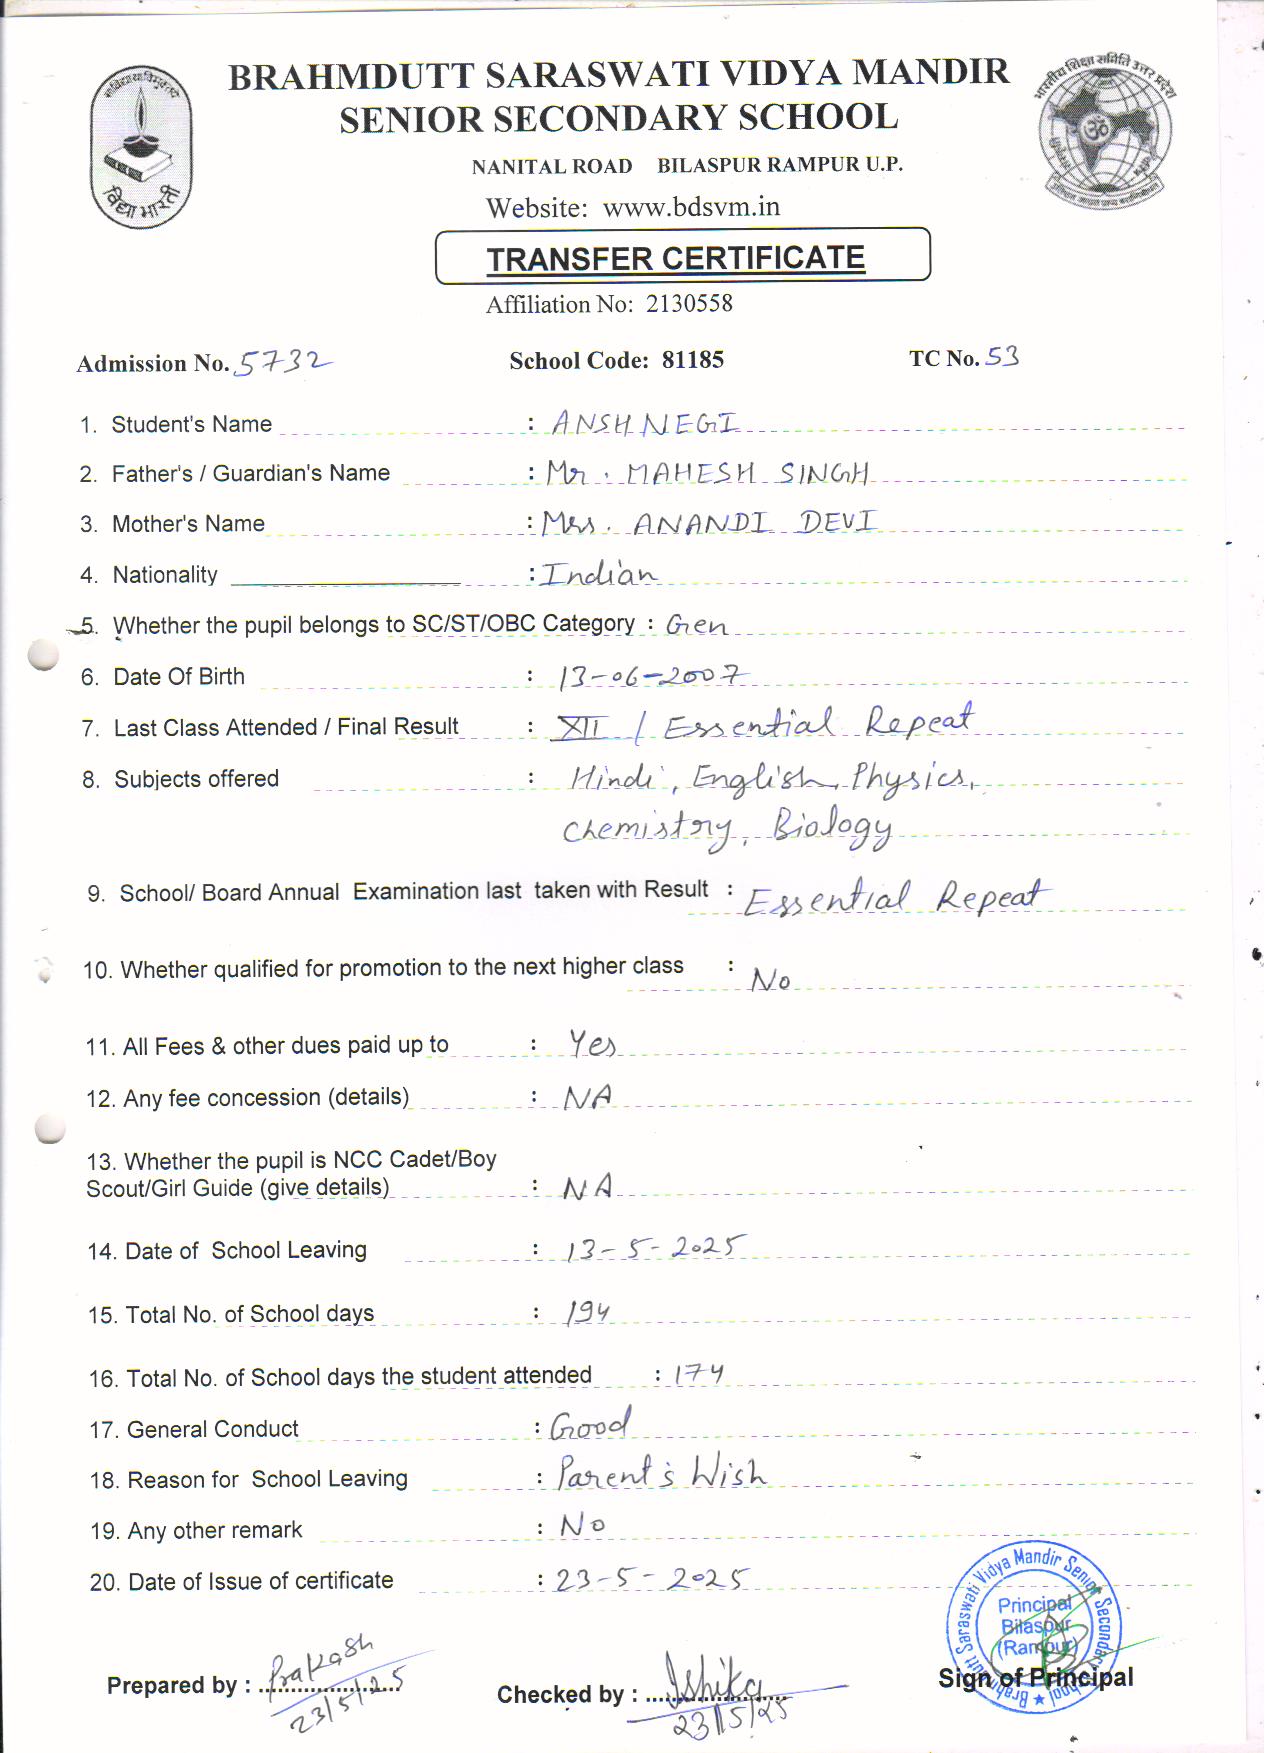 BRAHMDUTT SARASWATI VIDYA MANDIR
SENIOR SECONDARY SCHOOL
NANITAL ROAD BILASPUR RAMPUR U.P.
Website: www.bdsvm.in
विद्या भारती
भारतीय शिक्षा समिति उत्तर प्रदेश
TRANSFER CERTIFICATE
Affiliation No: 2130558
Admission No. 5732 School Code: 81185 TC No. 53
1. Student's Name : ANSH NEGI
2. Father's / Guardian's Name : Mr. MAHESH SINGH
3. Mother's Name : Mrs. ANANDI DEVI
4. Nationality : Indian
5. Whether the pupil belongs to SC/ST/OBC Category : Gen
6. Date Of Birth : 13-06-2007
7. Last Class Attended / Final Result : XII / Essential Repeat
8. Subjects offered : Hindi, English, Physics,
Chemistry, Biology
9. School/ Board Annual Examination last taken with Result : Essential Repeat
10. Whether qualified for promotion to the next higher class : No
11. All Fees & other dues paid up to : Yes
12. Any fee concession (details) : NA
13. Whether the pupil is NCC Cadet/Boy
Scout/Girl Guide (give details) : NA
14. Date of School Leaving : 13-5-2025
15. Total No. of School days : 194
16. Total No. of School days the student attended : 174
17. General Conduct : Good
18. Reason for School Leaving : Parent's Wish
19. Any other remark : No
20. Date of Issue of certificate : 23-5-2025
Brahmdutt Saraswati Vidya Mandir Senior Secondary School
Principal
Bilaspur
(Rampur)
Prepared by : Prakash
23/5/25
Checked by : Ishika
23/5/25
Sign of Principal